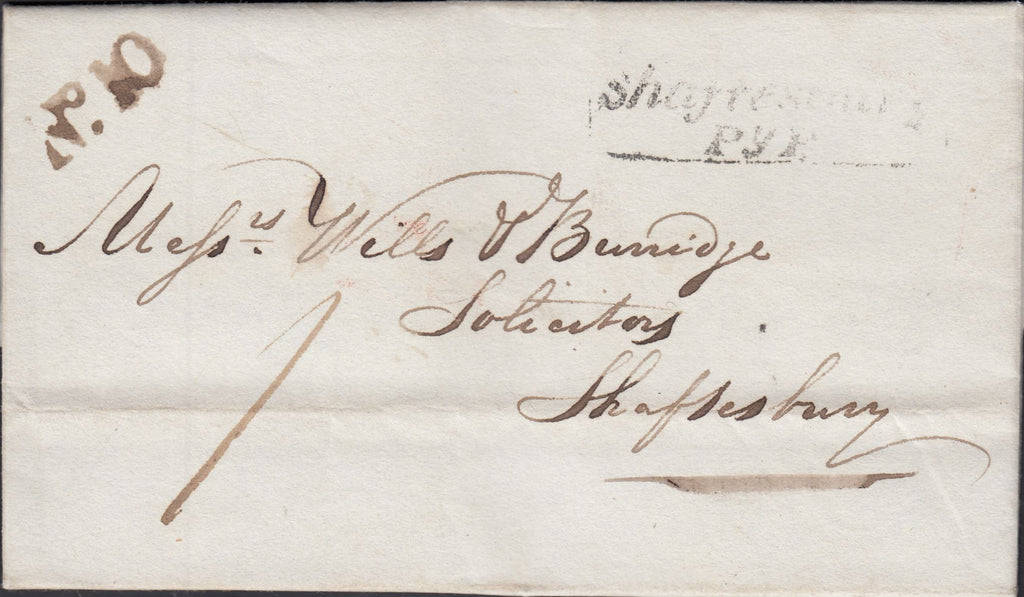 No. 2
Shaftesbury
Py P.
Messrs. Wills & Burridge
Solicitors
Shaftesbury
1